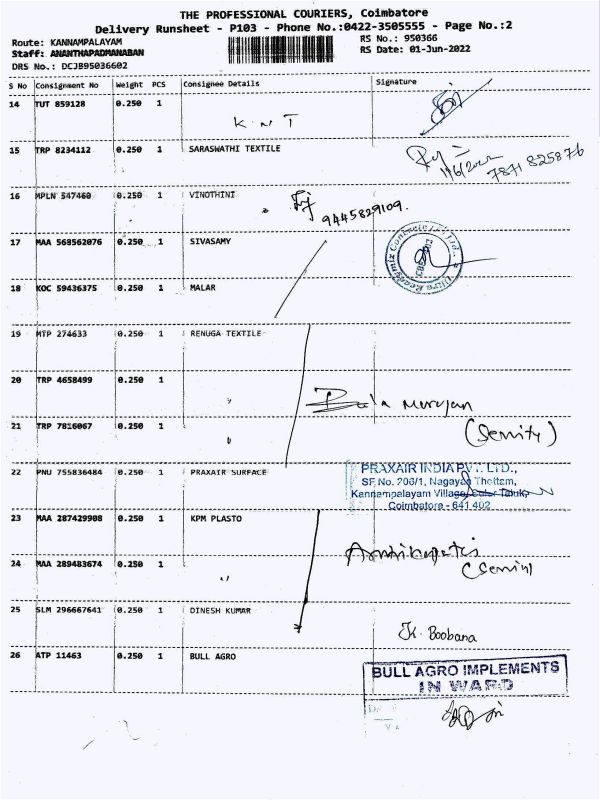 THE PROFESSIONAL COURIERS, Coimbatore
Delivery Runsheet - P103 - Phone No.:0422-3505555 - Page No.:2
Route: KANNAMPALAYAM
RS No.: 950366
Staff: ANANTHAPADMANABAN
RS Date: 01-Jun-2022
DRS No.: DCJB95036602
S No Consignment No Weight PCS Consignee Details Signature
14 TUT 859128 0.250 1
K N T
15 TRP 8234112 0.250 1 SARASWATHI TEXTILE
1/6/2022 7871 825876
16 MPLN 547460 0.250 1 VINOTHINI
9445829109.
17 MAA 568562076 0.250 1 SIVASAMY
18 KOC 59436375 0.250 1 MALAR
19 MTP 274633 0.250 1 RENUGA TEXTILE
20 TRP 4658499 0.250 1 "
Bala Murugan
21 TRP 7816067 0.250 1 "
22 PNU 755836484 0.250 1 PRAXAIR SURFACE
PRAXAIR INDIA PVT. LTD.,
SF No. 206/1, Nagayan Thottam,
Kannampalayam Village, Sulur Taluk,
Coimbatore - 641 402
23 MAA 287429908 0.250 1 KPM PLASTO
24 MAA 289483674 0.250 1 "
25 SLM 296667641 0.250 1 DINESH KUMAR
K. Boobana
26 ATP 11463 0.250 1 BULL AGRO
BULL AGRO IMPLEMENTS
IN WARD